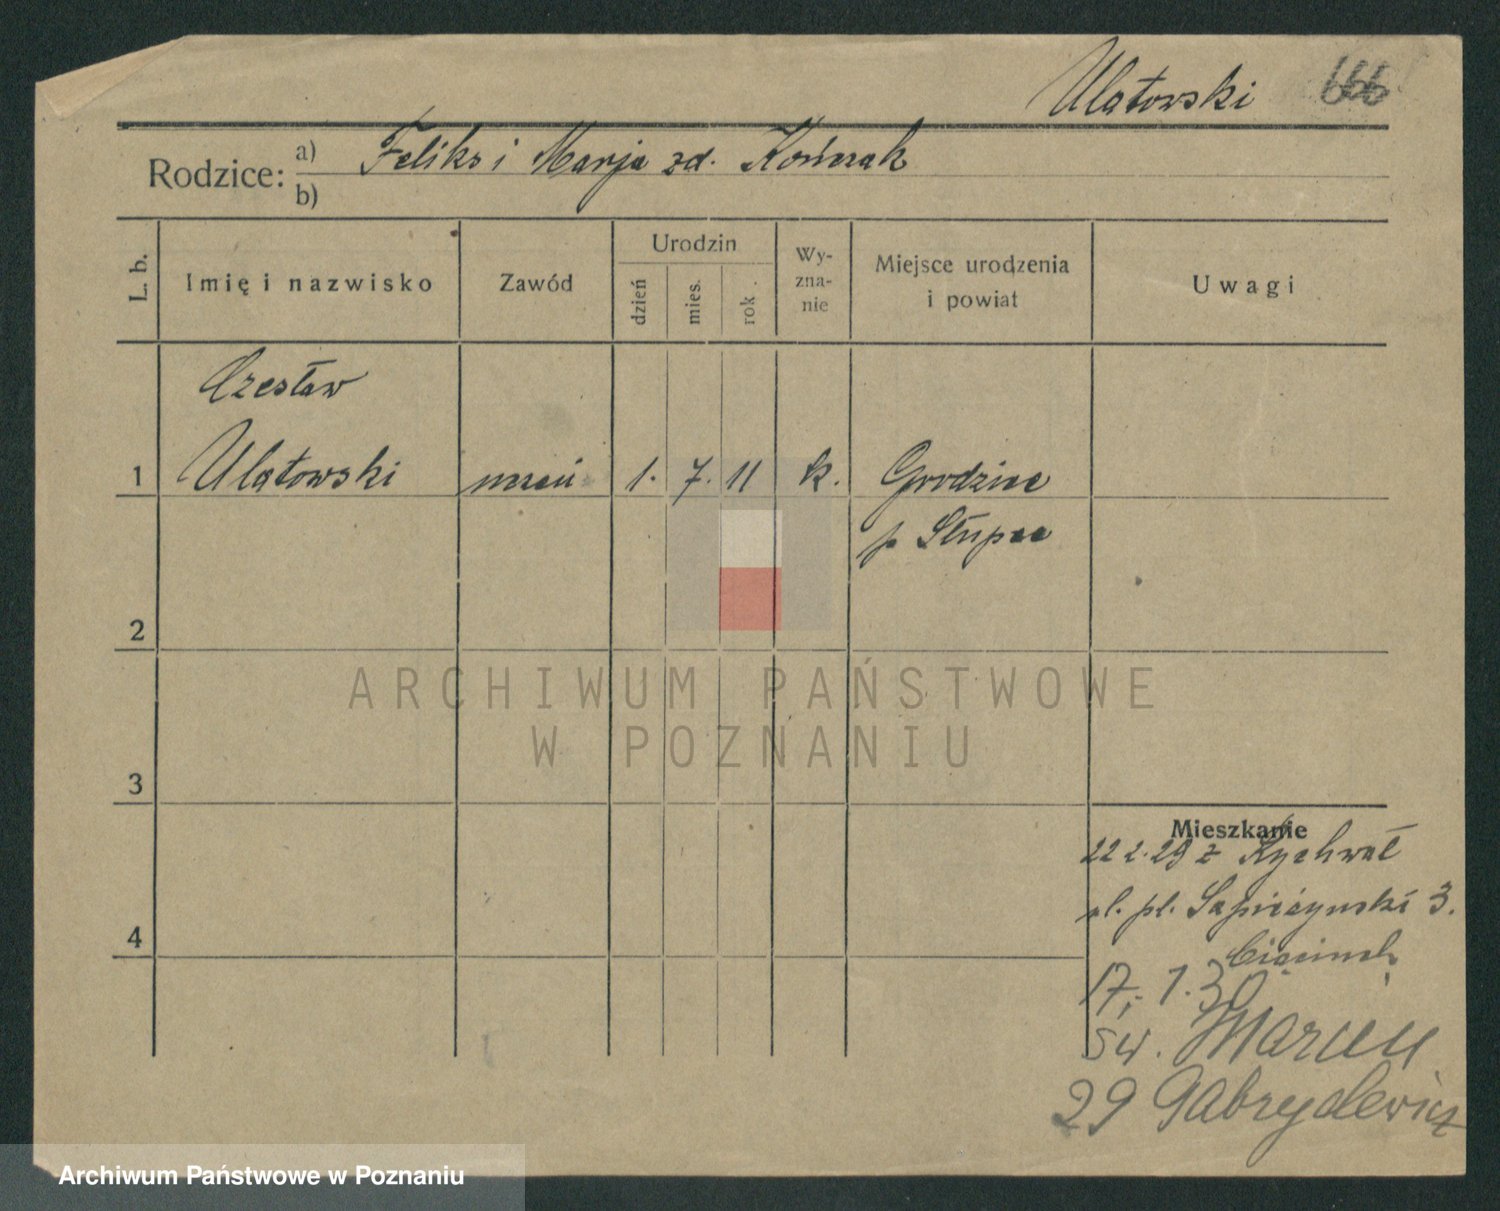 Ulatowski 666
Rodzice: a) Feliks i Marja zd. Kończak
b)
L. b.
Imię i nazwisko
Zawód
Urodzin
dzień
mies.
rok
Wy-
zna-
nie
Miejsce urodzenia
i powiat
Uwagi
Czesław
1 Ulatowski uczeń 1. 7. 11 k. Grodziec
p Słupca
2
ARCHIWUM PAŃSTWOWE
W POZNANIU
3
Mieszkanie
22 2. 29 z Rychwał
pl. Sapieżyński 3.
4
17, 1. 30
Św. Marcin
29 Gabryelewicz
Archiwum Państwowe w Poznaniu